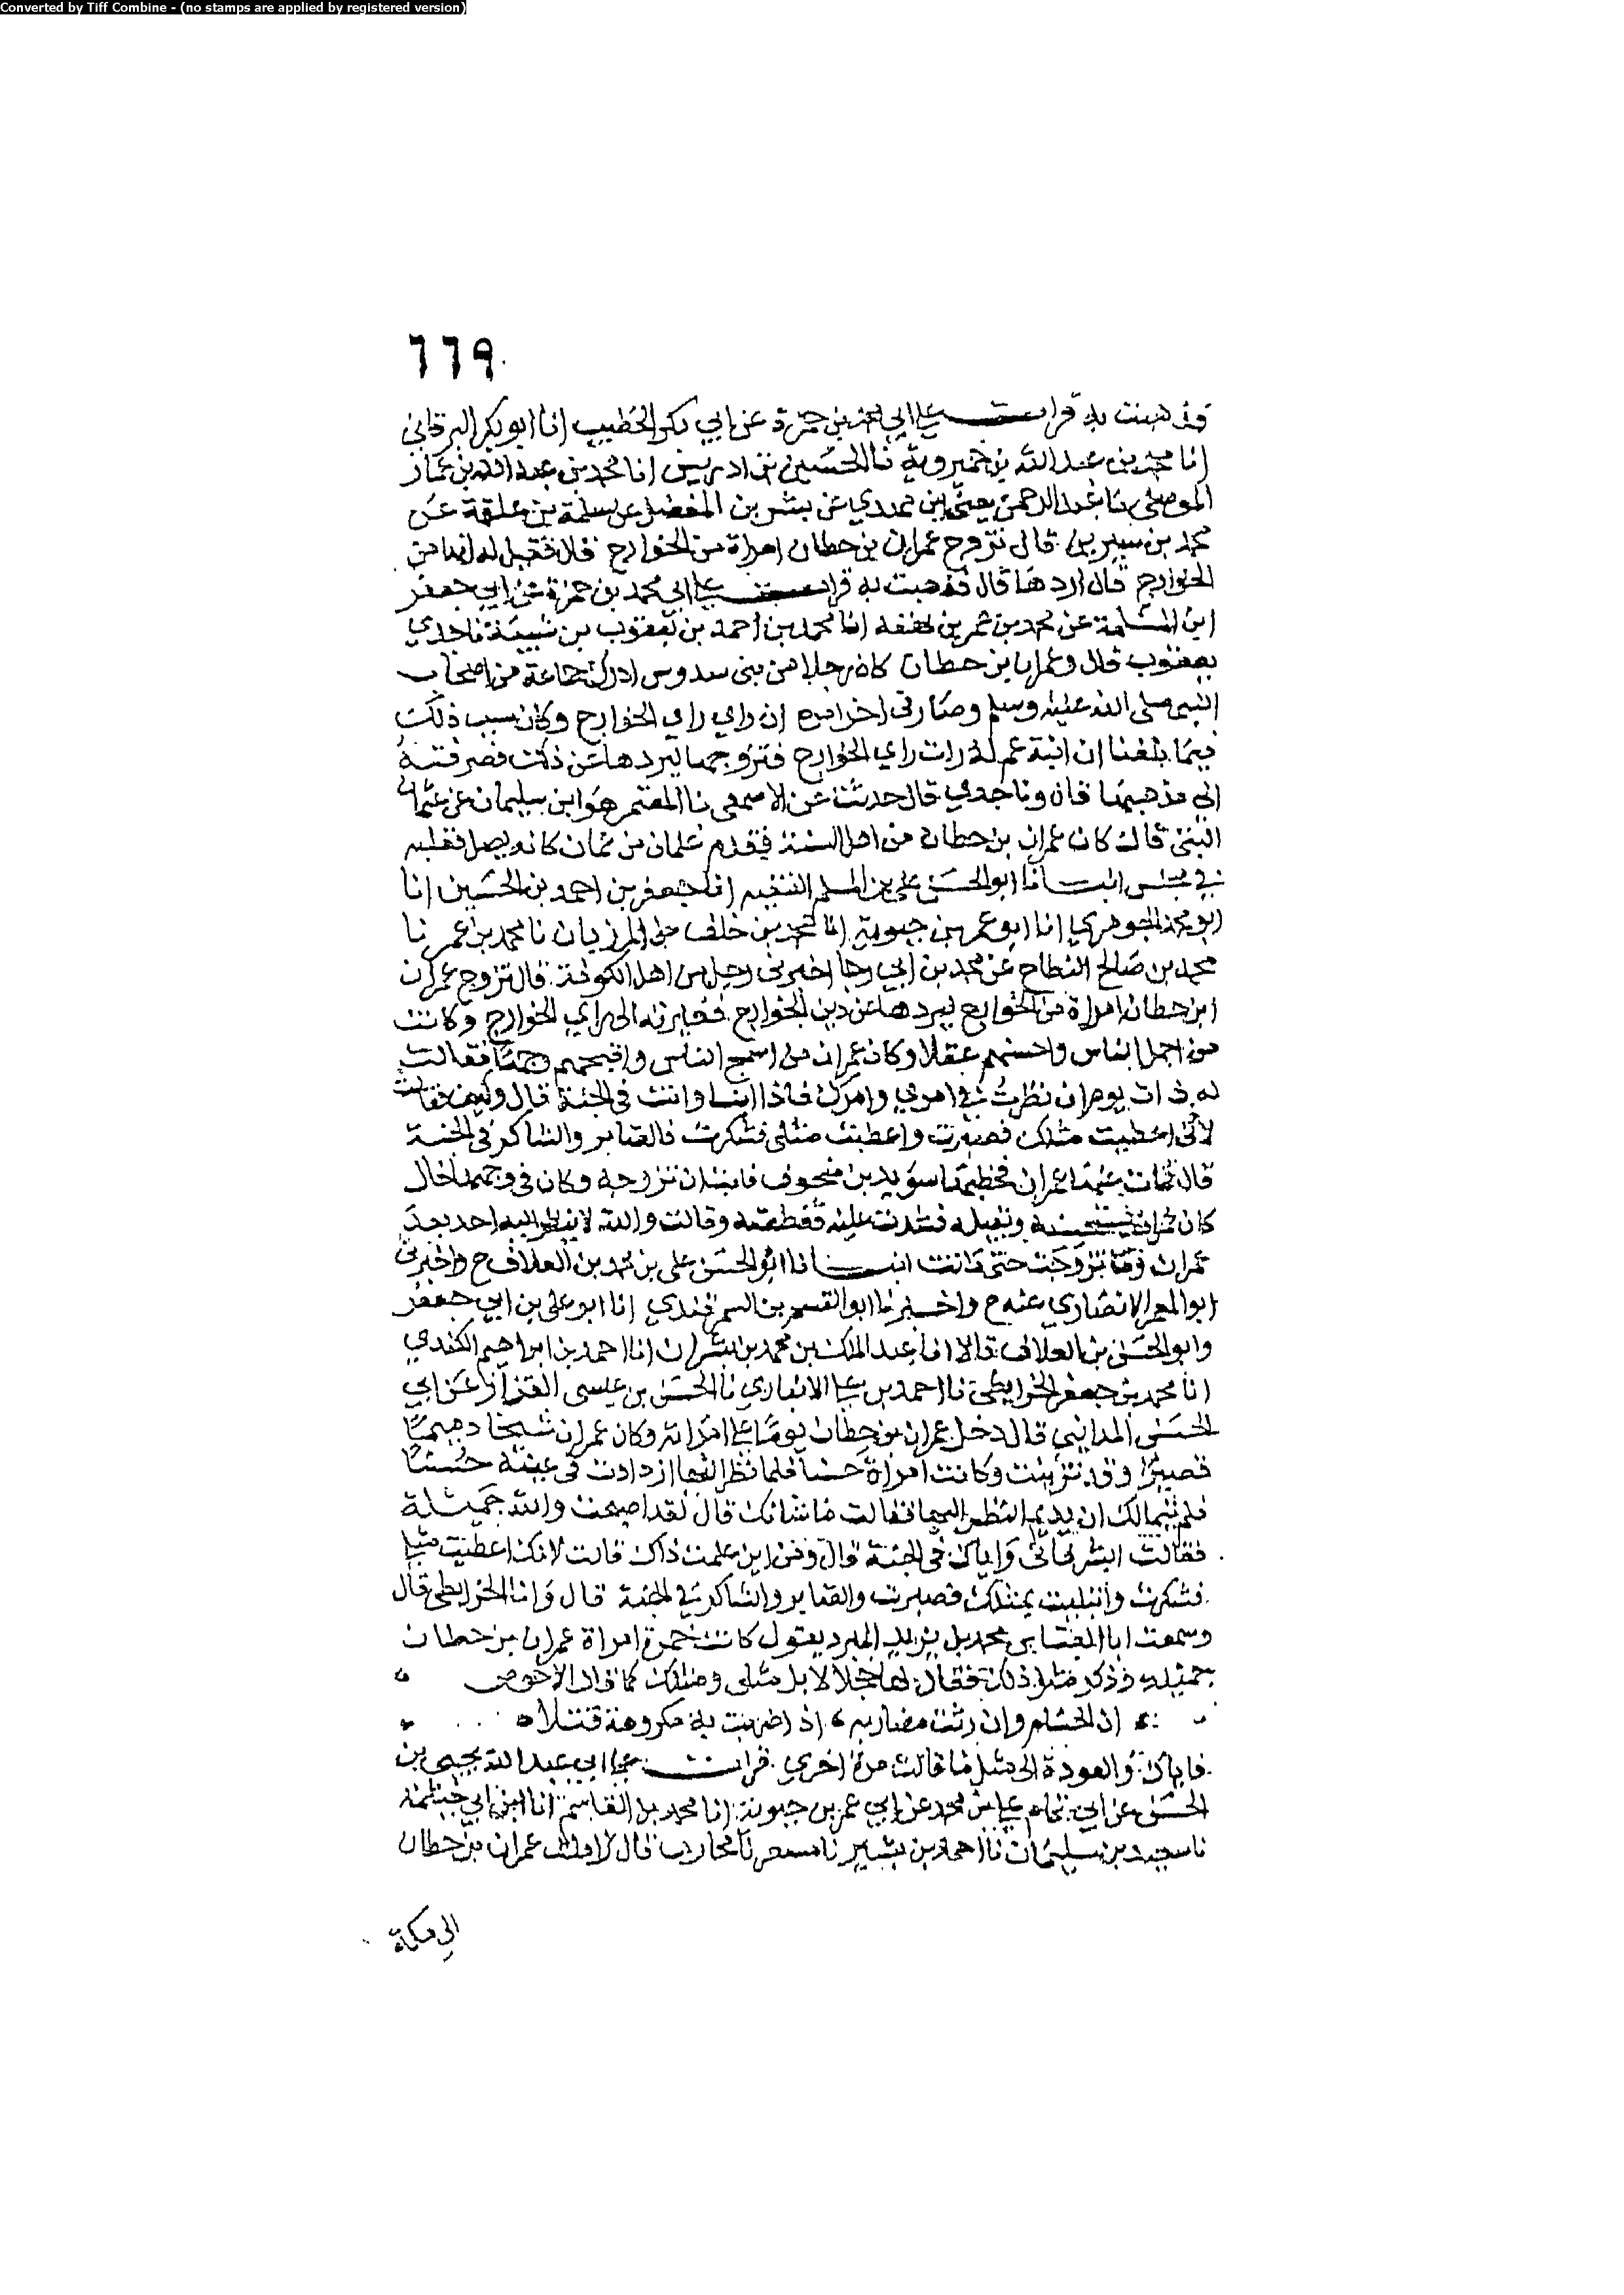 Converted by Tiff Combine - (no stamps are applied by registered version)
٦٦٩
فذهبت به قرات على ابي محمد بن حمزة عن ابي بكر الخطيب انا ابو بكر البرقاني
انا محمد بن عبد الله بن خميروية نا الحسين بن ادريس انا محمد بن عبد الله بن عمار
الموصلي نا عبد الرحمن يعني ابن مهدي عن بشر بن المفضل عن سلمة بن علقمة عن
محمد بن سيرين قال تزوج عمران بن حطان امراة من الخوارج فقيل له انها من
الخوارج قال اردها قال فذهبت به قرات على ابي محمد بن حمزة عن ابي جعفر
ابن المسلمة عن محمد بن عمر بن انا محمد بن احمد بن يعقوب بن شيبة نا جدي
يعقوب قال وعمران بن حطان كان رجلا من بني سدوس ادرك جماعة من اصحاب
النبي صلى الله عليه وسلم وصار في اخر امره ان راي راي الخوارج وكان سبب ذلك
فيما بلغنا ان ابنة عم له رات راي الخوارج فتزوجها ليردها عن ذلك فصرفته
الى مذهبها قال ونا جدي قال حدثت عن الاصمعي نا المعتمر هو ابن سليمان عن عثمان
البتي قال كان عمران بن حطان من اهل السنة فقدم غلمان من عمان كانه بصل فقلبه
في مجلس انبانا ابو الحسن علي بن المسلم الفقيه انا جعفر بن احمد بن الحسين انا
ابو محمد الجوهري انا ابو عمر بن حيوية انا محمد بن خلف بن المرزبان نا محمد بن عمر نا
محمد بن صالح النطاح عن محمد بن ابي رجا اخبرني رجل من اهل الكوفة قال تزوج عمران
ابن حطان امراة من الخوارج ليردها عن دين الخوارج فغيرته الى راي الخوارج وكانت
من اجمل الناس واحسنهم عقلا وكان عمران من اسمج الناس واقبحهم وجها فقالت
له ذات يوم اني نظرت في امري وامرك فاذا انا وانت في الجنة قال وكيف قالت
لاني اعطيت مثلك فصبرت واعطيت مثلي فشكرت فالصابر والشاكر في الجنة
قال فمات عنها عمران فخطبها سويد بن منجوف فابت ان تزوجه وكان في وجهها خال
كان عمران يستحسنه ويقبله فشدت عليه فقطعته وقالت والله لا ينظر اليه احد بعد
عمران فما تزوجت حتى ماتت انبانا ابو الحسن علي بن محمد بن العلاف ح واخبرني
ابو المعمر الانصاري عنه ح واخبرنا ابو القسم بن السمرقندي انا ابو علي بن ابي جعفر
وابو الحسن بن العلاف قالا انا عبد الملك بن محمد بن بشران انا احمد بن ابراهيم الكندي
انا محمد بن جعفر الخرايطي نا احمد بن علي الانباري نا الحسن بن عيسى القزاز عن ابي
الحسن المدايني قال دخل عمران بن حطان يوما على امراته وكان عمران شيخا دميما
قصيرا وقد تزينت وكانت امراة حسنا فلما نظر اليها ازدادت في عينه حسنا
فلم يتمالك ان يديم النظر اليها فقالت ما شانك قال لقد اصبحت والله جميلة
فقالت ابشر فاني واياك في الجنة قال ومن اين علمت ذاك قالت لانك اعطيت مثلي
فشكرت وابتليت بمثلك فصبرت والصابر والشاكر في الجنة قال وانا الخرايطي قال
وسمعت ابا العباس محمد بن يزيد المبرد يقول كانت حمرة امراة عمران بن حطان
جميله وذكر مثل ذلك فقال لها خجلا لا بل مثلي ومثلك كما قال الاحوص
ان الحسام وان رثت مضاربه اذا ضربت به مكروهة قتلا
فاياك والعودة الى مثل ما قالت مرة اخرى قرات على ابي عبد الله يحيى بن
الحسن عن ابي تمام علي بن محمد عن ابي عمر بن حيوية انا محمد بن القاسم انا ابن ابي خيثمة
نا سعيد بن سليمان نا احمد بن بشير نا مسعر نا محارب قال عمران بن حطان
الى مكة